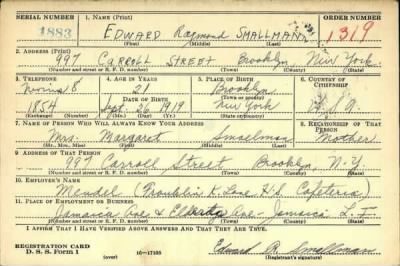 SERIAL NUMBER 1. NAME (Print) ORDER NUMBER
1883 EDWARD Raymond SMALLMAN 1319
(First) (Middle) (Last)
2. ADDRESS (Print)
997 CARROLL STREET Brooklyn, New York.
(Number and street or R. F. D. number) (Town) (County) (State)
3. TELEPHONE 4. AGE IN YEARS 5. PLACE OF BIRTH 6. COUNTRY OF CITIZENSHIP
8 21 Brooklyn
DATE OF BIRTH (Town or county)
1854 Sept. 1919 New York U.S.A.
(Exchange) (Number) (Mo.) (Day) (Yr.) (State or country)
7. NAME OF PERSON WHO WILL ALWAYS KNOW YOUR ADDRESS 8. RELATIONSHIP OF THAT PERSON
Mrs. Margaret Smallman Mother
(Mr., Mrs., Miss) (First) (Middle) (Last)
9. ADDRESS OF THAT PERSON
997 Carroll Street Brooklyn, N.Y
(Number and street or R. F. D. number) (Town) (County) (State)
10. EMPLOYER'S NAME
Mendel (Franklin K. Lane H.S. Cafeteria)
11. PLACE OF EMPLOYMENT OR BUSINESS
Jamaica Ave & Ave - Jamaica L.I.
(Number and street or R. F. D. number) (Town) (County) (State)
I AFFIRM THAT I HAVE VERIFIED ABOVE ANSWERS AND THAT THEY ARE TRUE.
REGISTRATION CARD
D. S. S. Form 1 (over) 16—17105 Edward R. Smallman
(Registrant's signature)